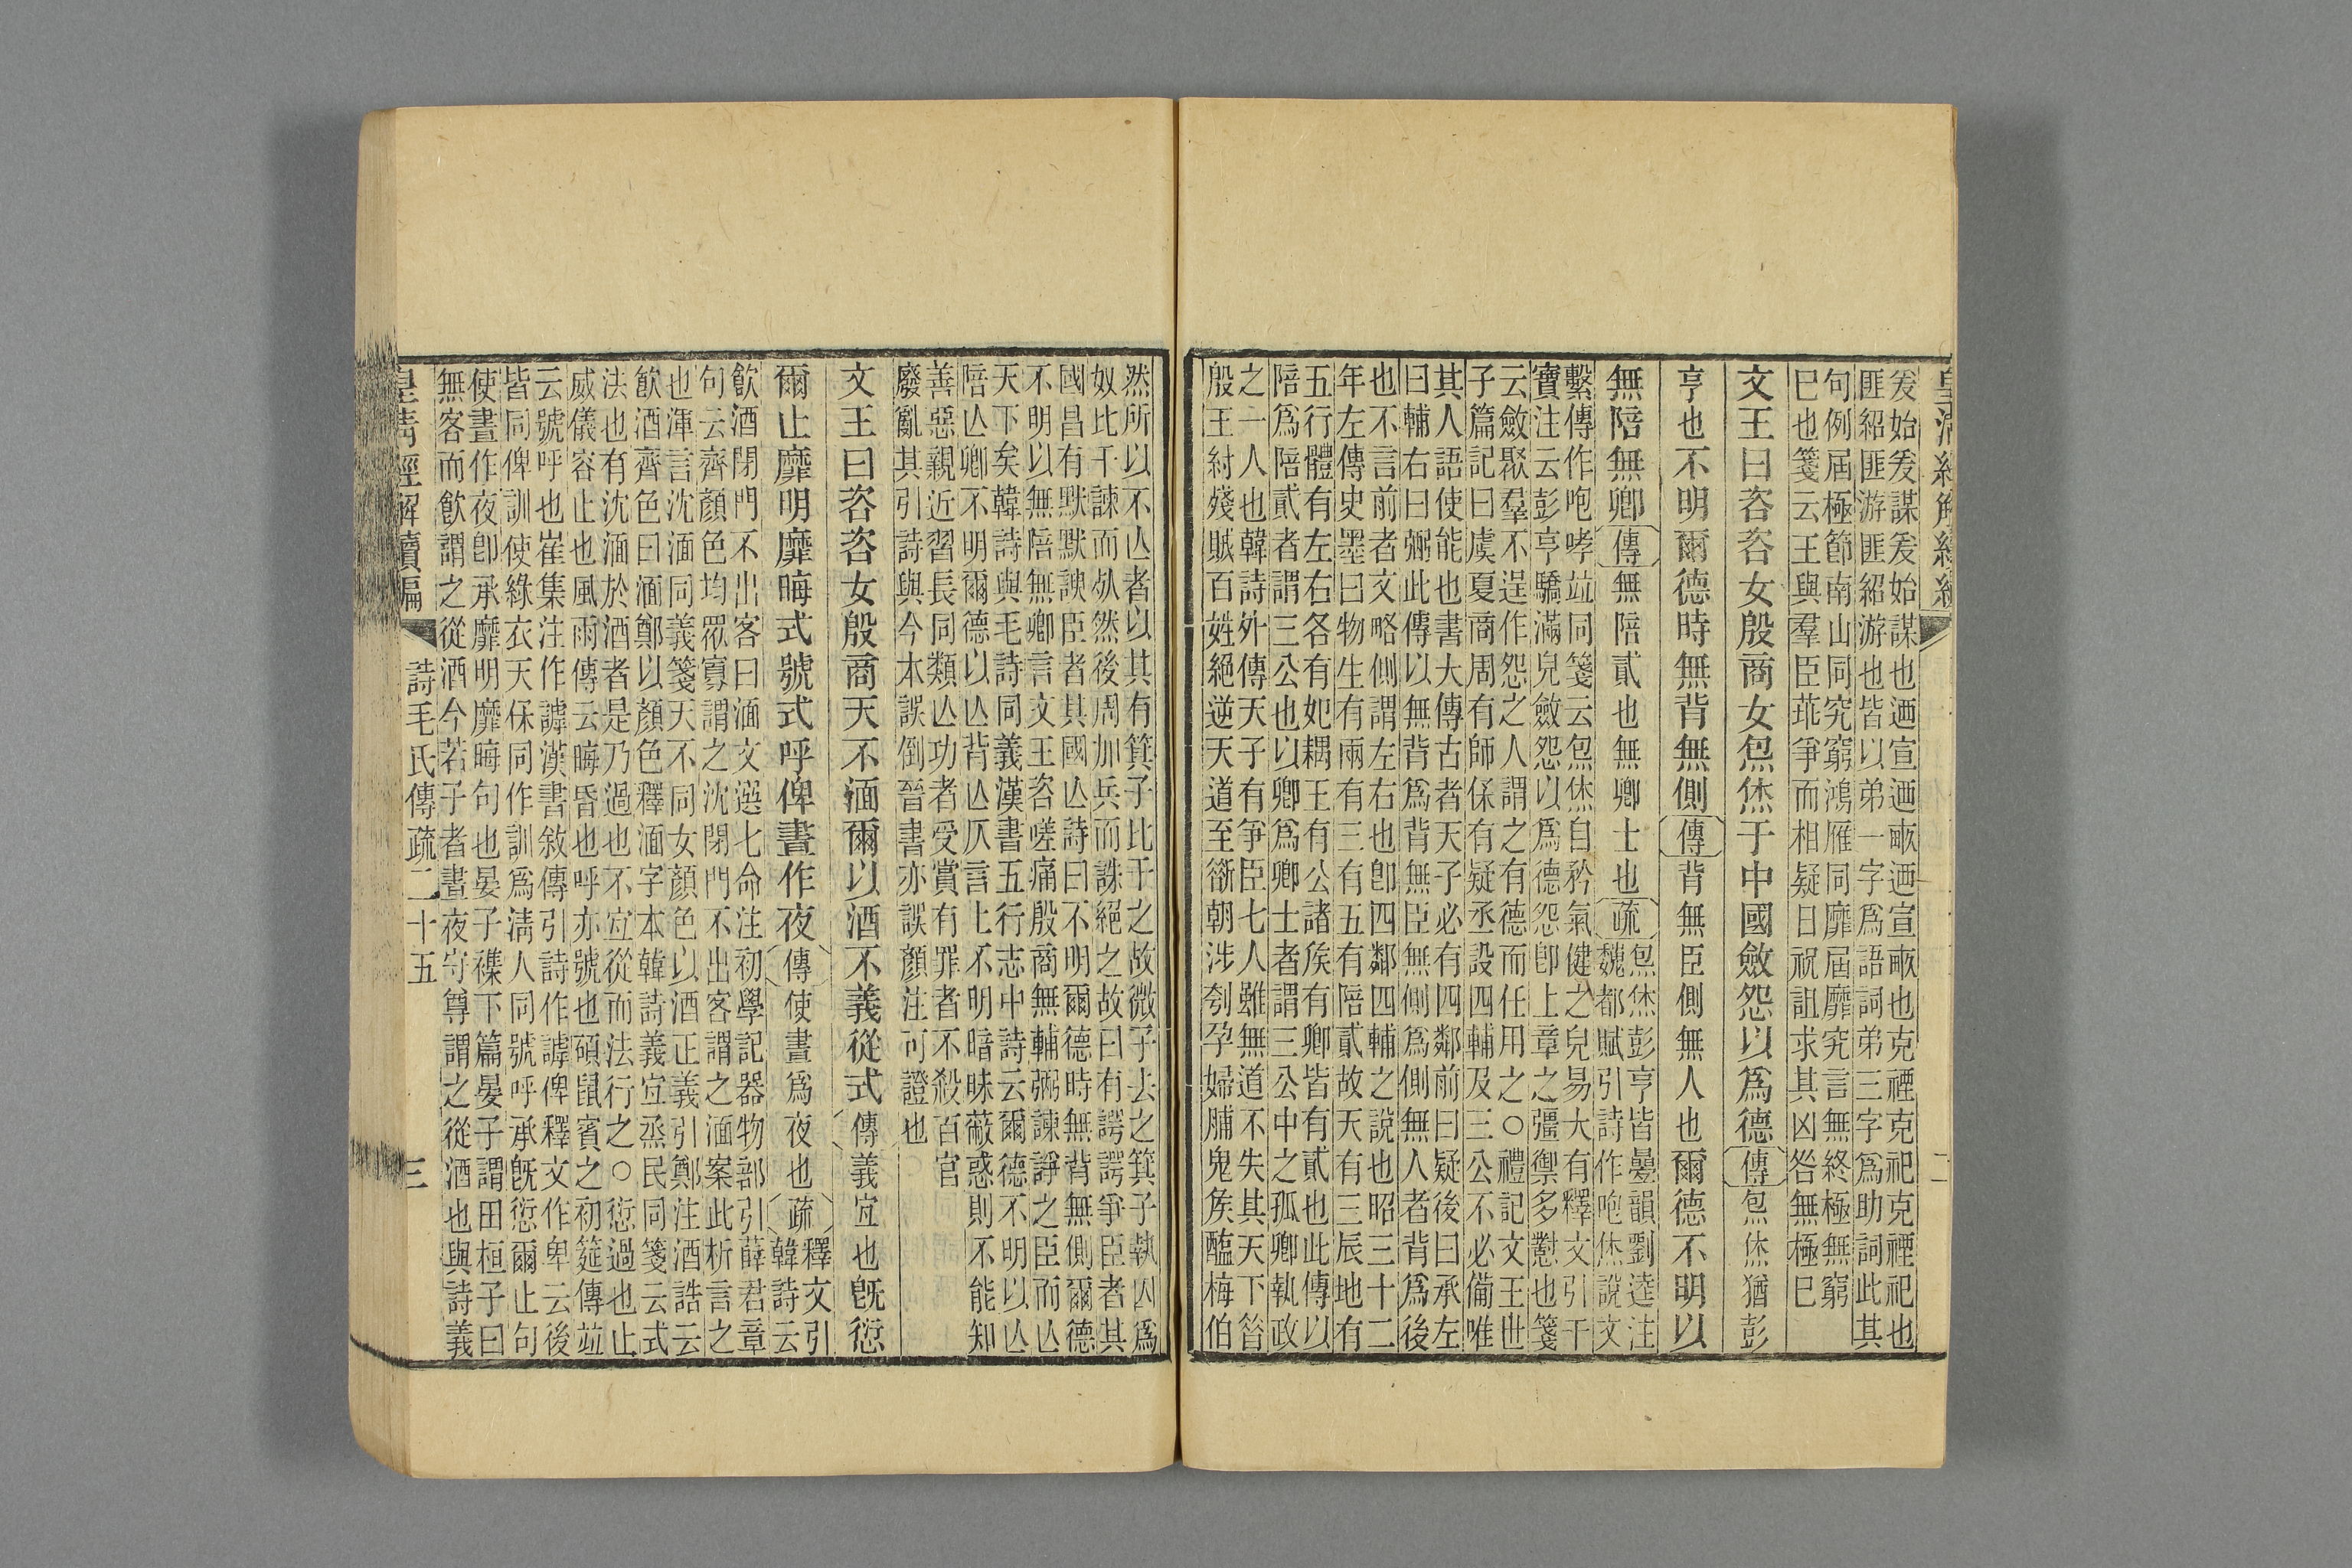 皇清經解續編
二
爰始爰謀爰始謀也迺宣迺畝迺宣畝也克禋克祀克禋祀也
匪紹匪游匪紹游也皆以弟一字爲語詞弟三字爲助詞此其
句例屆極節南山同究窮鴻雁同靡屆靡究言無終極無窮
巳也箋云王與羣臣乖爭而相疑日祝詛求其凶咎無極巳
文王曰咨咨女殷商女炰烋于中國斂怨以爲德傳炰烋猶彭
亨也不明爾德時無背無側傳背無臣側無人也爾德不明以
無陪無卿傳無陪貳也無卿士也疏
炰烋彭亨皆曡韻劉逵注
魏都賦引詩作咆烋說文
繫傳作咆哮竝同箋云炰烋自矜氣健之皃易大有釋文引干
寶注云彭亨驕滿皃斂怨以爲德怨卽上章之彊禦多懟也箋
云斂聚羣不逞作怨之人謂之有德而任用之○禮記文王世
子篇記曰虞夏商周有師保有疑丞設四輔及三公不必備唯
其人語使能也書大傳古者天子必有四鄰前曰疑後曰承左
曰輔右曰弼此傳以無背爲背無臣無側爲側無人者背爲後
也不言前者文略側謂左右也卽四鄰四輔之說也昭三十二
年左傳史墨曰物生有兩有三有五有陪貳故天有三辰地有
五行體有左右各有妃耦王有公諸矦有卿皆有貳也此傳以
陪爲陪貳者謂三公也以卿爲卿士者謂三公中之孤卿執政
之一人也韓詩外傳天子有爭臣七人雖無道不失其天下昔
殷王紂殘賊百姓絕逆天道至斮朝涉刳孕婦脯鬼矦醢梅伯
然所以不亾者以其有箕子比干之故微子去之箕子執囚爲
奴比干諫而死然後周加兵而誅絕之故曰有諤諤爭臣者其
國昌有默默諛臣者其國亾詩曰不明爾德時無背無側爾德
不明以無陪無卿言文王咨嗟痛殷商無輔弼諫諍之臣而亾
天下矣韓詩與毛詩同義漢書五行志中詩云爾德不明以亾
陪亾卿不明爾德以亾背亾仄言上不明暗昧蔽惑則不能知
善惡親近習長同類亾功者受賞有罪者不殺百官
廢亂其引詩與今本誤倒晉書亦誤顏注可證也
文王曰咨咨女殷商天不湎爾以酒不義從式傳義宜也旣愆
爾止靡明靡晦式號式呼俾晝作夜傳使晝爲夜也疏
釋文引
韓詩云
飮酒閉門不出客曰湎文選七命注初學記器物部引薛君章
句云齊顏色均眾寡謂之沈閉門不出客謂之湎案此析言之
也渾言沈湎同義箋天不同女顏色以酒正義引鄭注酒誥云
飮酒齊色曰湎鄭以顏色釋湎字本韓詩義宜烝民同箋云式
法也有沈湎於酒者是乃過也不宜從而法行之○愆過也止
威儀容止也風雨傳云晦昏也呼亦號也碩鼠賓之初筵傳竝
云號呼也崔集注作謼漢書敘傳引詩作謼俾釋文作卑云後
皆同俾訓使綠衣天保同作訓爲淸人同號呼承旣愆爾止句
使晝作夜卽承靡明靡晦句也晏子襍下篇晏子謂田桓子曰
無客而飮謂之從酒今若子者晝夜守尊謂之從酒也與詩義
皇清經解續編
詩毛氏傳疏二十五
三